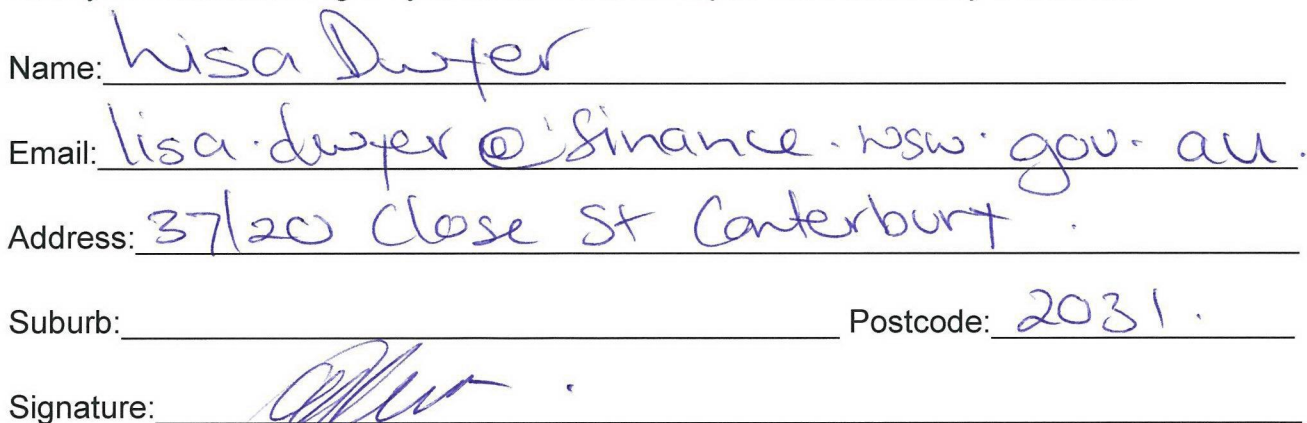 Name: Lisa Dwyer
Email: lisa.dwyer@finance.nsw.gov.au.
Address: 37/20 Close St Canterbury.
Suburb: Postcode: 2031.
Signature: